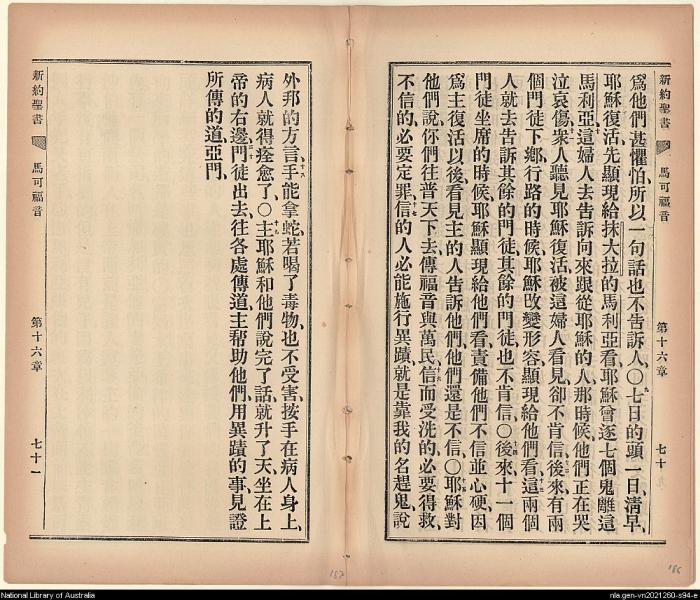 新約聖書 馬可福音 第十六章 七十
爲他們甚懼怕、所以一句話也不告訴人、〇九七日的頭一日、清早、
耶穌復活、先顯現給抹大拉的馬利亞看、耶穌曾逐七個鬼離這
馬利亞、十這婦人去告訴向來跟從耶穌的人、那時候他們正在哭
泣哀傷、十一衆人聽見耶穌復活、被這婦人看見、卻不肯信、十二後來有兩
個門徒下鄉、行路的時候、耶穌改變形容、顯現給他們看、十三這兩個
人就去告訴其餘的門徒、其餘的門徒也不肯信、〇十四後來十一個
門徒坐席的時候、耶穌顯現給他們看、責備他們不信、並心硬、因
爲主復活以後看見主的人告訴他們、他們還是不信、〇十五耶穌對
他們說、你們往普天下去、傳福音與萬民、十六信而受洗的、必要得救、
不信的、必要定罪、十七信的人必能施行異蹟、就是靠我的名趕鬼、說
外邦的方言、十八手能拿蛇、若喝了毒物、也不受害、按手在病人身上、
病人就得痊愈了、〇十九主耶穌和他們說完了話、就升了天、坐在上
帝的右邊、二十門徒出去、往各處傳道、主帮助他們、用異蹟的事、見證
所傳的道、亞門、
新約聖書 馬可福音 第十六章 七十一
187
186
National Library of Australia
nla.gen-vn2021260-s94-e